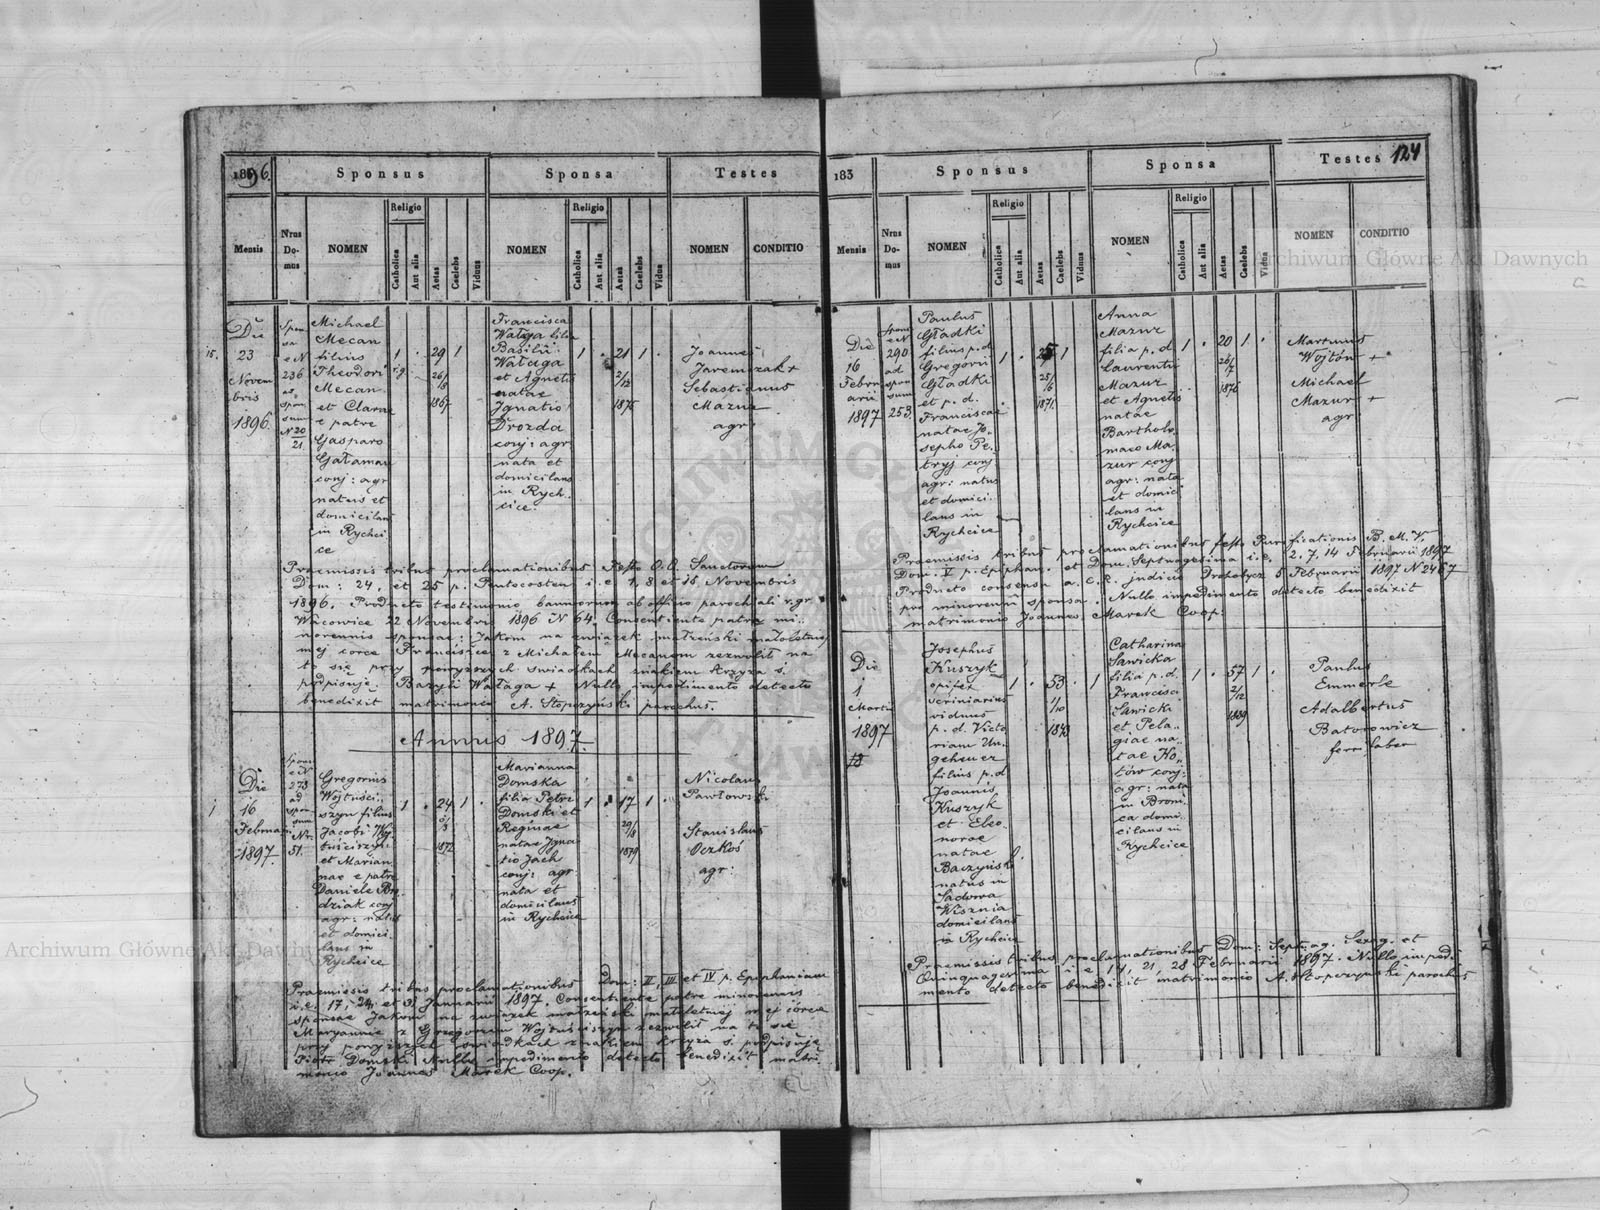 1896.
Sponsus
Sponsa
Testes
Mensis
Nrus Domus
NOMEN
Religio
Catholica
Aut alia
Aetas
Caelebs
Viduus
NOMEN
Religio
Catholica
Aut alia
Aetas
Caelebs
Vidua
NOMEN
CONDITIO
15.
Die
23
Novem
bris
1896.
Spon
sa
e N
236
ad
spon
sum
N 20
21.
Michael
Mecan
filius
Theodori
Mecan
et Clarae
e patre
Gasparo
Gałaman
conj: agr
natus et
domicilans
in Rychci
ce
1
r.g.
29
26/8
1867
1
Francisca
Wałaga filia
Basilii
Wałaga
et Agnetis
natae
Ignatio
Drozda
conj: agr
nata et
domicilans
in Rych
cice.
1
21
2/12
1875
1
Joannes
Jaremczak +
Sebastianus
Mazur
agr
Praemissis tribus proclamationibus Festo O.O. Sanctorum
Dom: 24. et 25 p. Pentecosten i. e 1, 8 et 15 Novembris
1896. Producto testimonio bannorum ab officio parochiali r. gr.
Wacowice 22 Novembris 1896 N 64. Consentiente patre mi
norennis sponsae: Jakom na związek małżeński małoletniej
mej córce Franciszce z Michałem Mecanem zezwolił na
to się przy powyższych świadkach znakiem krzyża ś.
podpisuję. Bazyli Wałaga + Nullo impedimento detecto
benedixit matrimonio A. Stopczyński parochus.
Annus 1897.
1
Die
16
Februarii
1897
Spon
e N
273
ad
spon
sum
Nr.
51.
Gregorius
Wojtuści
szyn filius
Jacobi Woj
tuściszyn
et Marian
nae e patre
Daniele Bro
dziak conj
agr: natus
et domici
lans in
Rychcice
1
24
5/3
1872
1
Marianna
Domska
filia Petri
Domski et
Reginae
natae Igna
tio Jach
conj: agr
nata et
domicilans
in Rychcice
1
17
29/8
1879
1
Nicolaus
Pawłowski
Stanislaus
Oczkoś
agr:
Praemissis tribus proclamationibus Dom: II, III et IV p. Epiphaniam
i. e. 17, 24, et 31 Januarii 1897. Consentiente patre minorennis
sponsae Jakom na związek małżeński małoletniej mej córce
Maryannie z Grzegorzem Wojtuściszyn zezwolił na to się
przy powyższych świadkach znakiem krzyża ś. podpisuję
Piotr Domski Nullo impedimento detecto benedixit matri
monio Joannes Marek Coop.
183
Sponsus
Sponsa
Testes
124
Mensis
Nrus Domus
NOMEN
Religio
Catholica
Aut alia
Aetas
Caelebs
Viduus
NOMEN
Religio
Catholica
Aut alia
Aetas
Caelebs
Vidua
NOMEN
CONDITIO
Die
16
Febru
arii
1897
e N
290
ad
spon
sum
253.
Paulus
Gładki
filius p. d
Gregorii
Gładki
et p. d.
Franciscae
natae Jo
sepho Pe
tryj conj
agr: natus
et domici
lans in
Rychcice
1
25
25/6
1871.
1
Anna
Mazur
filia p. d
Laurentii
Mazur
et Agnetis
natae
Bartholo
maeo Ma
zur conj
agr: nata
et domici
lans in
Rychcice
1
20
26/7
1876
1
Martinus
Wojtón +
Michael
Mazur +
agr
Praemissis tribus proclamationibus festo Purificationis B. M. V.
Dom. V p. Epiphan. et Dom. Septuagesima i. e. 2. 7. 14 Februarii 1897
Producto consensu a. C. R. judicio Drohobycz 5 Februarii 1897 N 2467
pro minorenni sponsa. Nullo impedimento detecto benedixit
matrimonio Joannes Marek Coop.
Die
1
Martii
1897
18
Josephus
Kuszyk
opifex
scriniarius
viduus
p. d. Victo
riam Un
geheuer
filius p. d
Joannis
Kuszyk
et Eleo
norae
natae
Baczyński
natus in
Sadowa
Wisznia
domicilans
in Rychcice
1
53
1/10
1843
1
Catharina
Sawicka
filia p. d.
Francisci
Sawicki
et Pela
giae na
tae Ko
tów conj:
agr: nata
in Broni
ca domi
cilans in
Rychcice
1
57
2/12
1839
1
Paulus
Emmerle
Adalbertus
Batorowicz
ferri faber
Praemissis tribus proclamationibus Dom: Septuag. Sexag. et
Quinquagesima i. e 14, 21, 28 Februarii 1897. Nullo impedi
mento detecto benedixit matrimonio A. Stopczyński parochus
Archiwum Główne Akt Dawnych
Archiwum Główne Akt Dawnych